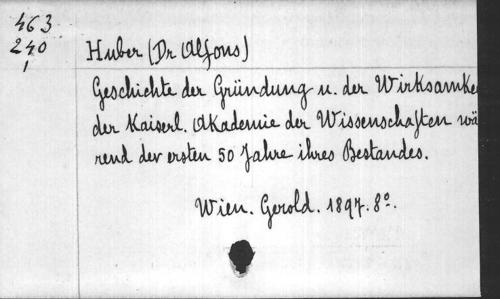 463
240
1
Huber (Dr Alfons)
Geschichte der Gründung u. der Wirksamke
der Kaiserl. Akademie der Wissenschaften wä
rend der ersten 50 Jahre ihres Bestandes.
Wien. Gerold. 1897. 8º.